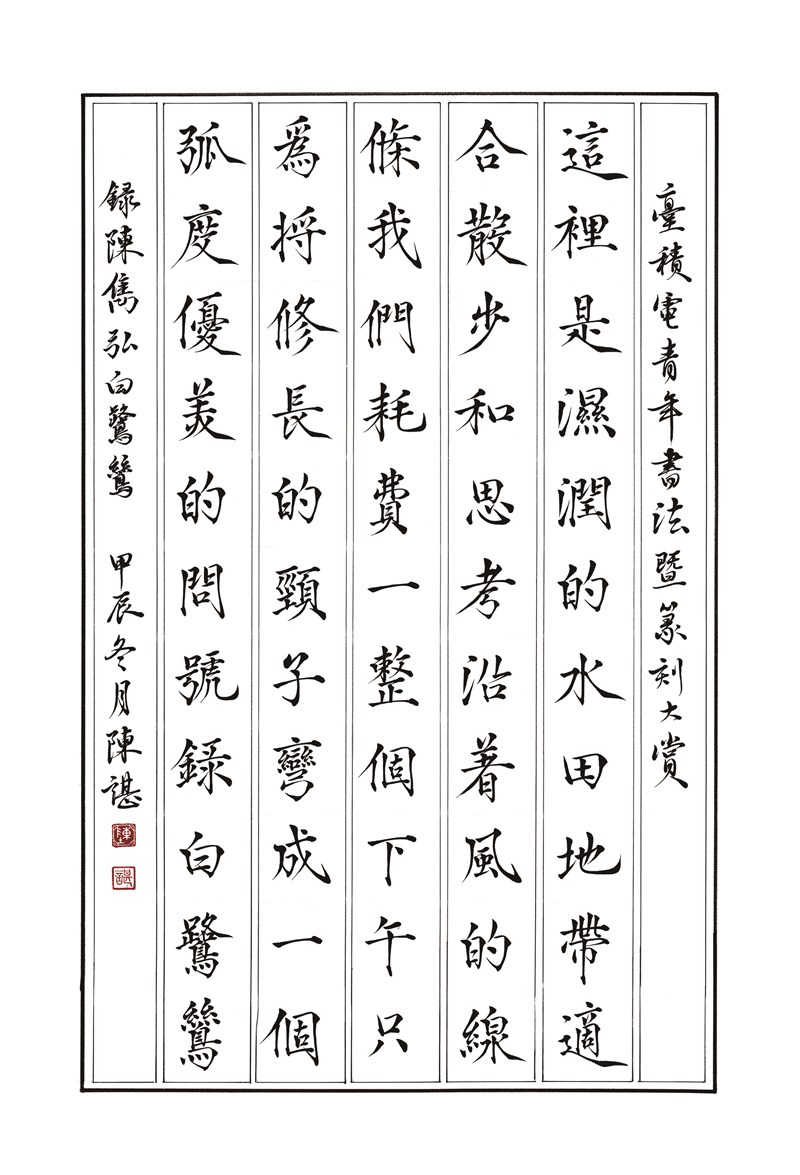 臺積電青年書法暨篆刻大賞
這裡是濕潤的水田地帶適
合散步和思考沿着風的線
條我們耗費一整個下午只
爲將修長的頸子彎成一個
弧度優美的問號錄白鷺鷥
錄陳雋弘白鷺鷥 甲辰冬月陳諶
陳
諶